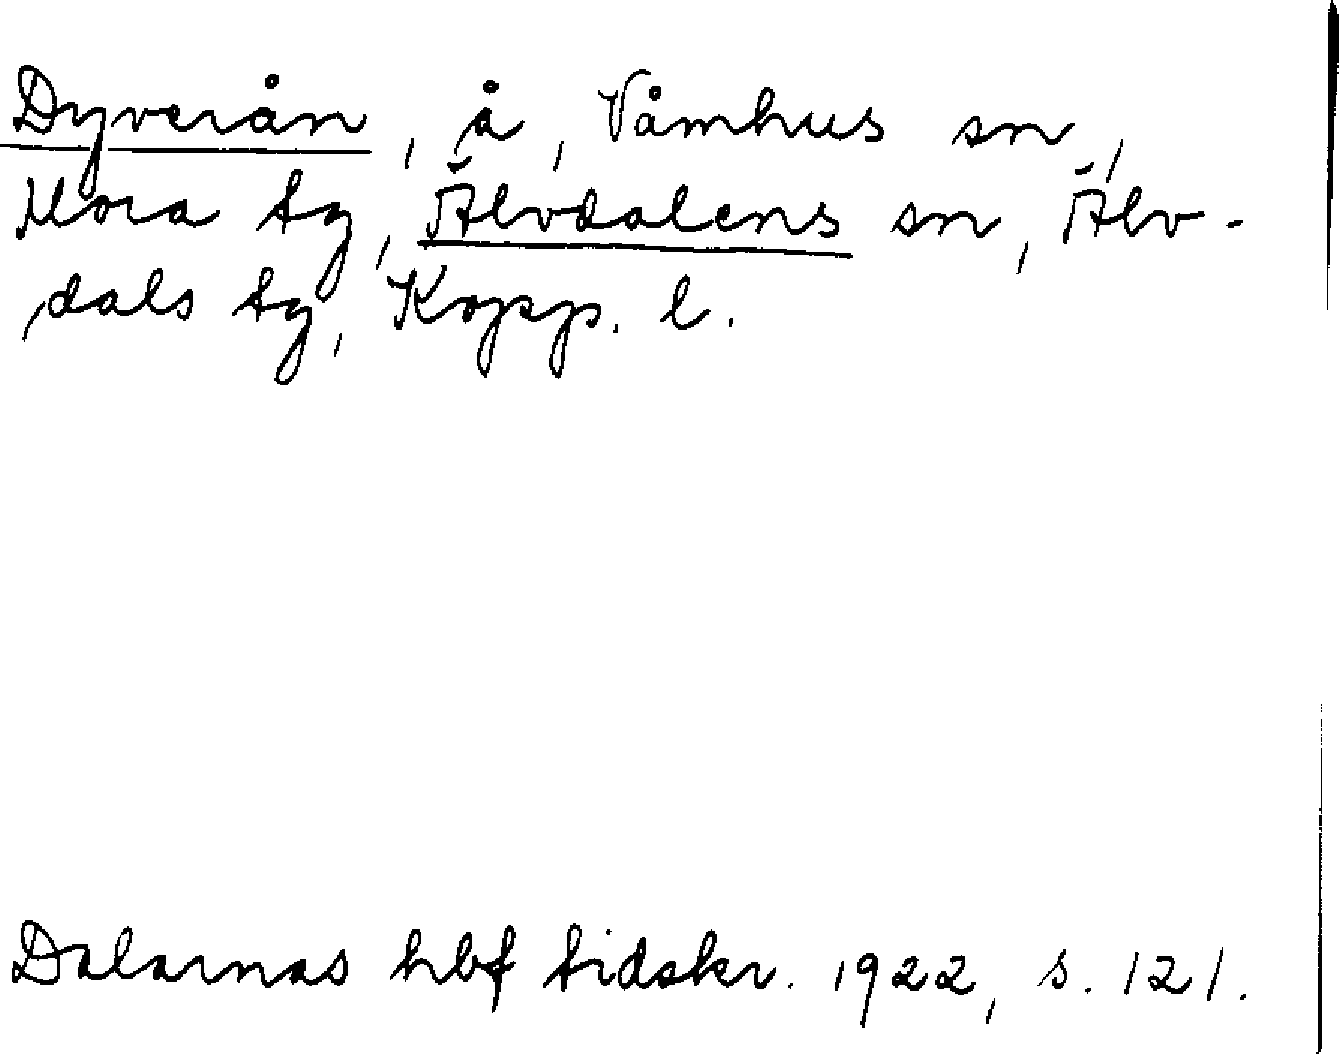 Dyverån, å, Våmhus sn,
Mora tg, Älvdalens sn, Älv-
dals tg, Kopp. l.
Dalarnas hbf tidskr. 1922, s. 121.